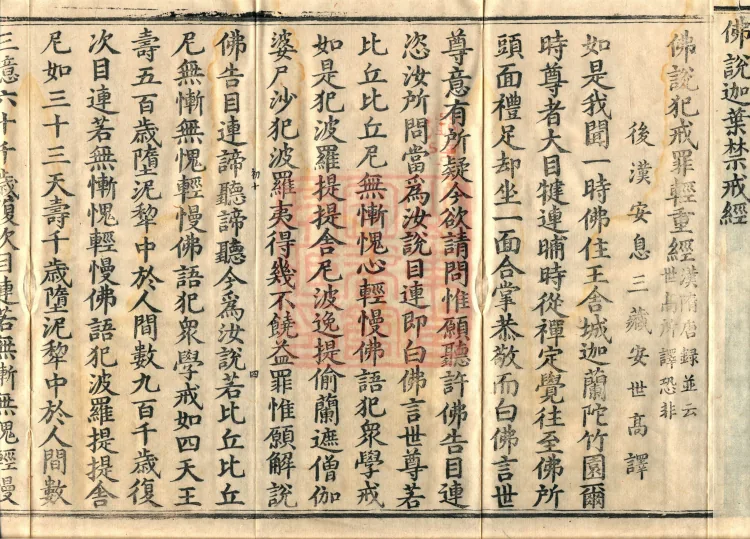 佛說迦葉禁戒經
佛說犯戒罪輕重經漢隋唐錄並云
世高所譯恐非
後漢安息三藏安世高譯
如是我聞一時佛住王舍城迦蘭陀竹園爾
時尊者大目揵連晡時從禪定覺往至佛所
頭面禮足却坐一面合掌恭敬而白佛言世
尊意有所疑今欲請問惟願聽許佛告目連
恣汝所問當爲汝說目連即白佛言世尊若
比丘比丘尼無慚愧心輕慢佛語犯衆學戒
如是犯波羅提提舍尼波逸提偷蘭遮僧伽
婆尸沙犯波羅夷得幾不饒益罪惟願解說
初十
四
佛告目連諦聽諦聽今爲汝說若比丘比丘
尼無慚無愧輕慢佛語犯衆學戒如四天王
壽五百歲墮泥犂中於人間數九百千歲復
次目連若無慚愧輕慢佛語犯波羅提提舍
尼如三十三天壽千歲墮泥犂中於人間數
三億六十千歲復次目連若無慚無愧輕慢